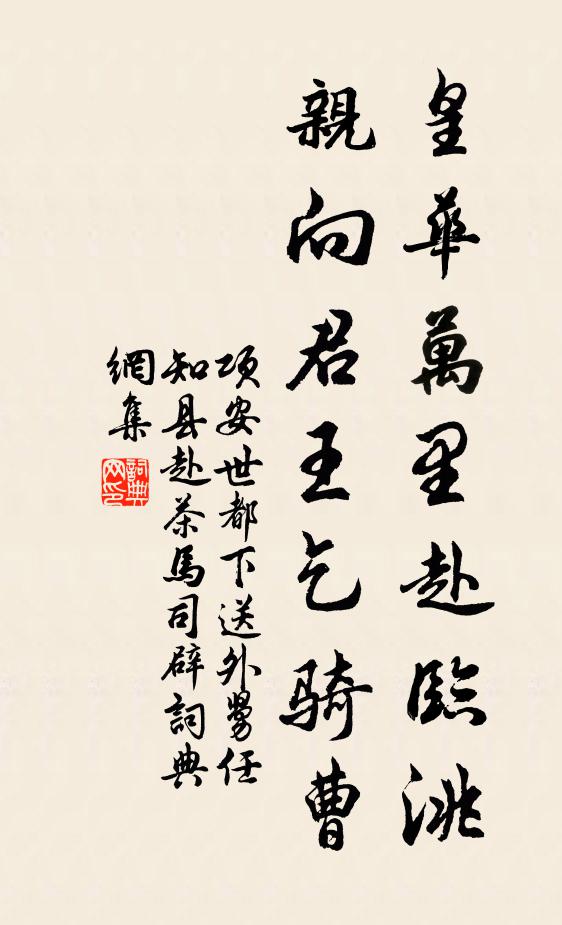 皇華萬里赴臨洮
親向君王乞騎曹
項安世都下送外舅任
知县赴茶馬司辟詞典
網集
詞典網印